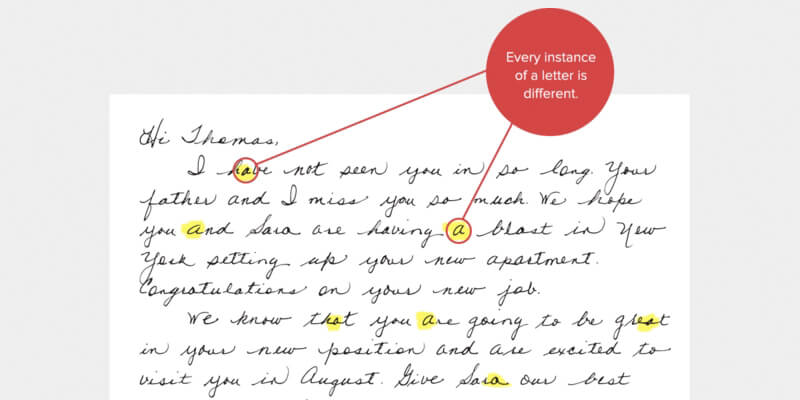 Every instance
of a letter is
different.
Hi Thomas,
I have not seen you in so long. Your
father and I miss you so much. We hope
you and Sara are having a blast in New
York setting up your new apartment.
Congratulations on your new job.
We know that you are going to be great
in your new position and are excited to
visit you in August. Give Sara our best